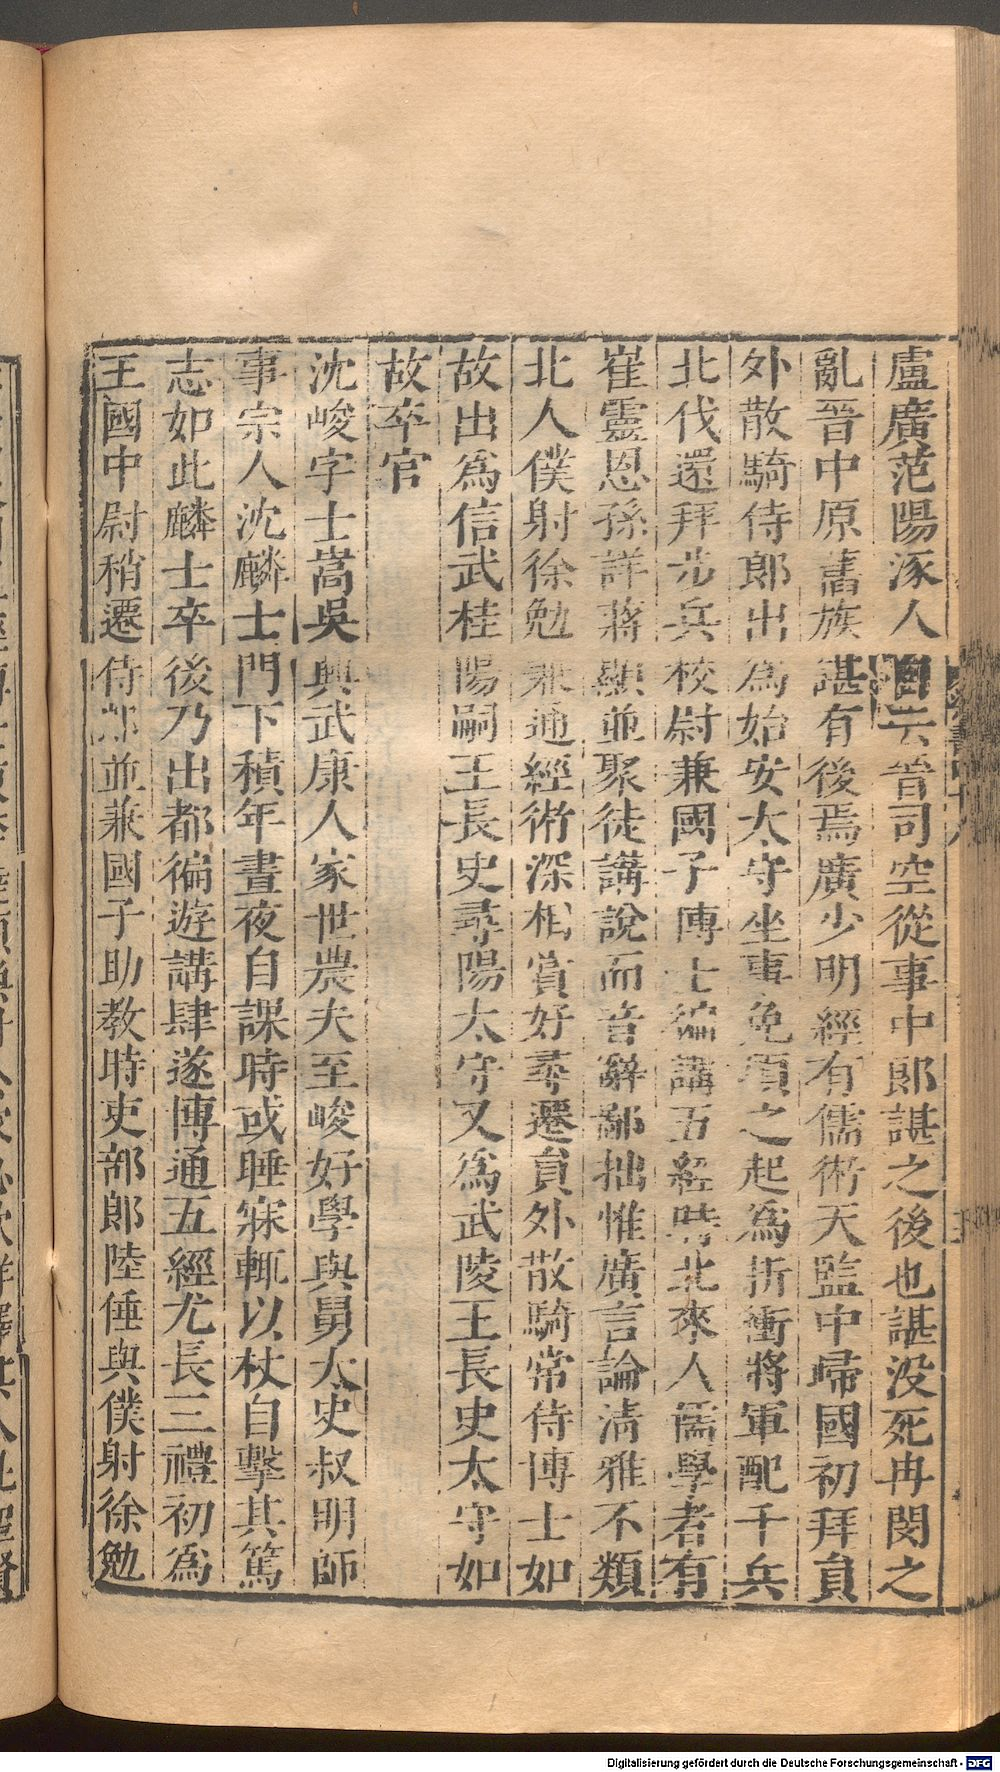 盧廣范陽涿人自云晉司空從事中郎諶之後也諶没死冉閔之
亂晉中原舊族諶有後焉廣少明經有儒術天監中歸國初拜員
外散騎侍郎出為始安太守坐事免頃之起為折衝將軍配千兵
北伐還拜步兵校尉兼國子博士徧講五經時北來人儒學者有
崔靈恩孫詳蔣顯並聚徒講說而音辭鄙拙惟廣言論清雅不類
北人僕射徐勉兼通經術深相賞好尋遷員外散騎常侍博士如
故出為信武桂陽嗣王長史尋陽太守又為武陵王長史太守如
故卒官
沈峻字士嵩吳興武康人家世農夫至峻好學與舅太史叔明師
事宗人沈麟士門下積年晝夜自課時或睡寐輒以杖自擊其篤
志如此麟士卒後乃出都徧遊講肆遂博通五經尤長三禮初為
王國中尉稍遷侍郎並兼國子助教時吏部郎陸倕與僕射徐勉
Digitalisierung gefördert durch die Deutsche Forschungsgemeinschaft - DFG